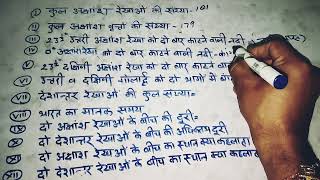 (I) कुल अक्षांश रेखाओं की संख्या-181
(II) कुल अक्षांश वृत्तों की संख्या-179
(III) 23½ उत्तरी अक्षांश रेखा को दो बार काटने वाली नदी-
(IV) 0° अक्षांश रेखा को दो बार काटने वाली नदी-
(V) 23½ दक्षिणी अक्षांश रेखा को दो बार काटने
(VI) उत्तरी व दक्षिणी गोलार्ध को दो भागों में
(VII) देशान्तर रेखाओं की कुल संख्या=
(VIII) भारत का मानक समय=
(IX) दो अक्षांश रेखाओं के बीच की दूरी=
(X) दो देशान्तर रेखाओं के बीच की अधिकतम दूरी
(XI) दो अक्षांश रेखाओं के बीच का स्थान क्या कहलाता
(XII) दो देशान्तर रेखा के बीच का स्थान क्या कहलाता